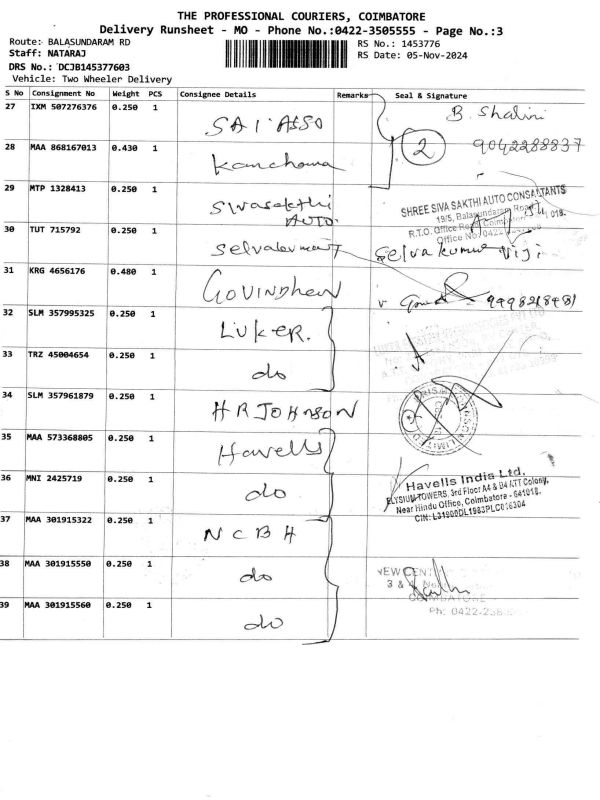 THE PROFESSIONAL COURIERS, COIMBATORE
Delivery Runsheet - MO - Phone No.:0422-3505555 - Page No.:3
Route: BALASUNDARAM RD
RS No.: 1453776
Staff: NATARAJ
RS Date: 05-Nov-2024
DRS No.: DCJB145377603
Vehicle: Two Wheeler Delivery
S No Consignment No Weight PCS Consignee Details Remarks Seal & Signature
27 IXM 507276376 0.250 1 SAI ASSO B. Shalini
28 MAA 868167013 0.430 1 2 9042288837
29 MTP 1328413 0.250 1 Sivasakthi AUTO.
SHREE SIVA SAKTHI AUTO CONSULTANTS
19/5, Balasundaram Road
R.T.O. Office Coimbatore 018.
Office No: 0422
30 TUT 715792 0.250 1 Selvakumar Viji
31 KRG 4656176 0.480 1 GOVINDHEN 9498218481
32 SLM 357995325 0.250 1 LUKER.
33 TRZ 45004654 0.250 1 do
34 SLM 357961879 0.250 1 HR JOHNSON
35 MAA 573368805 0.250 1 Havells
36 MNI 2425719 0.250 1 do
Havells India Ltd.
ELYSIUM TOWERS, 3rd Floor A4 & B4 ATT Colony,
Near Hindu Office, Coimbatore - 641018.
CIN: L31900DL1983PLC016304
37 MAA 301915322 0.250 1 NCBH
38 MAA 301915550 0.250 1 do
NEW CEN
3 &
COIMBATORE
39 MAA 301915560 0.250 1 do
Ph: 0422-238